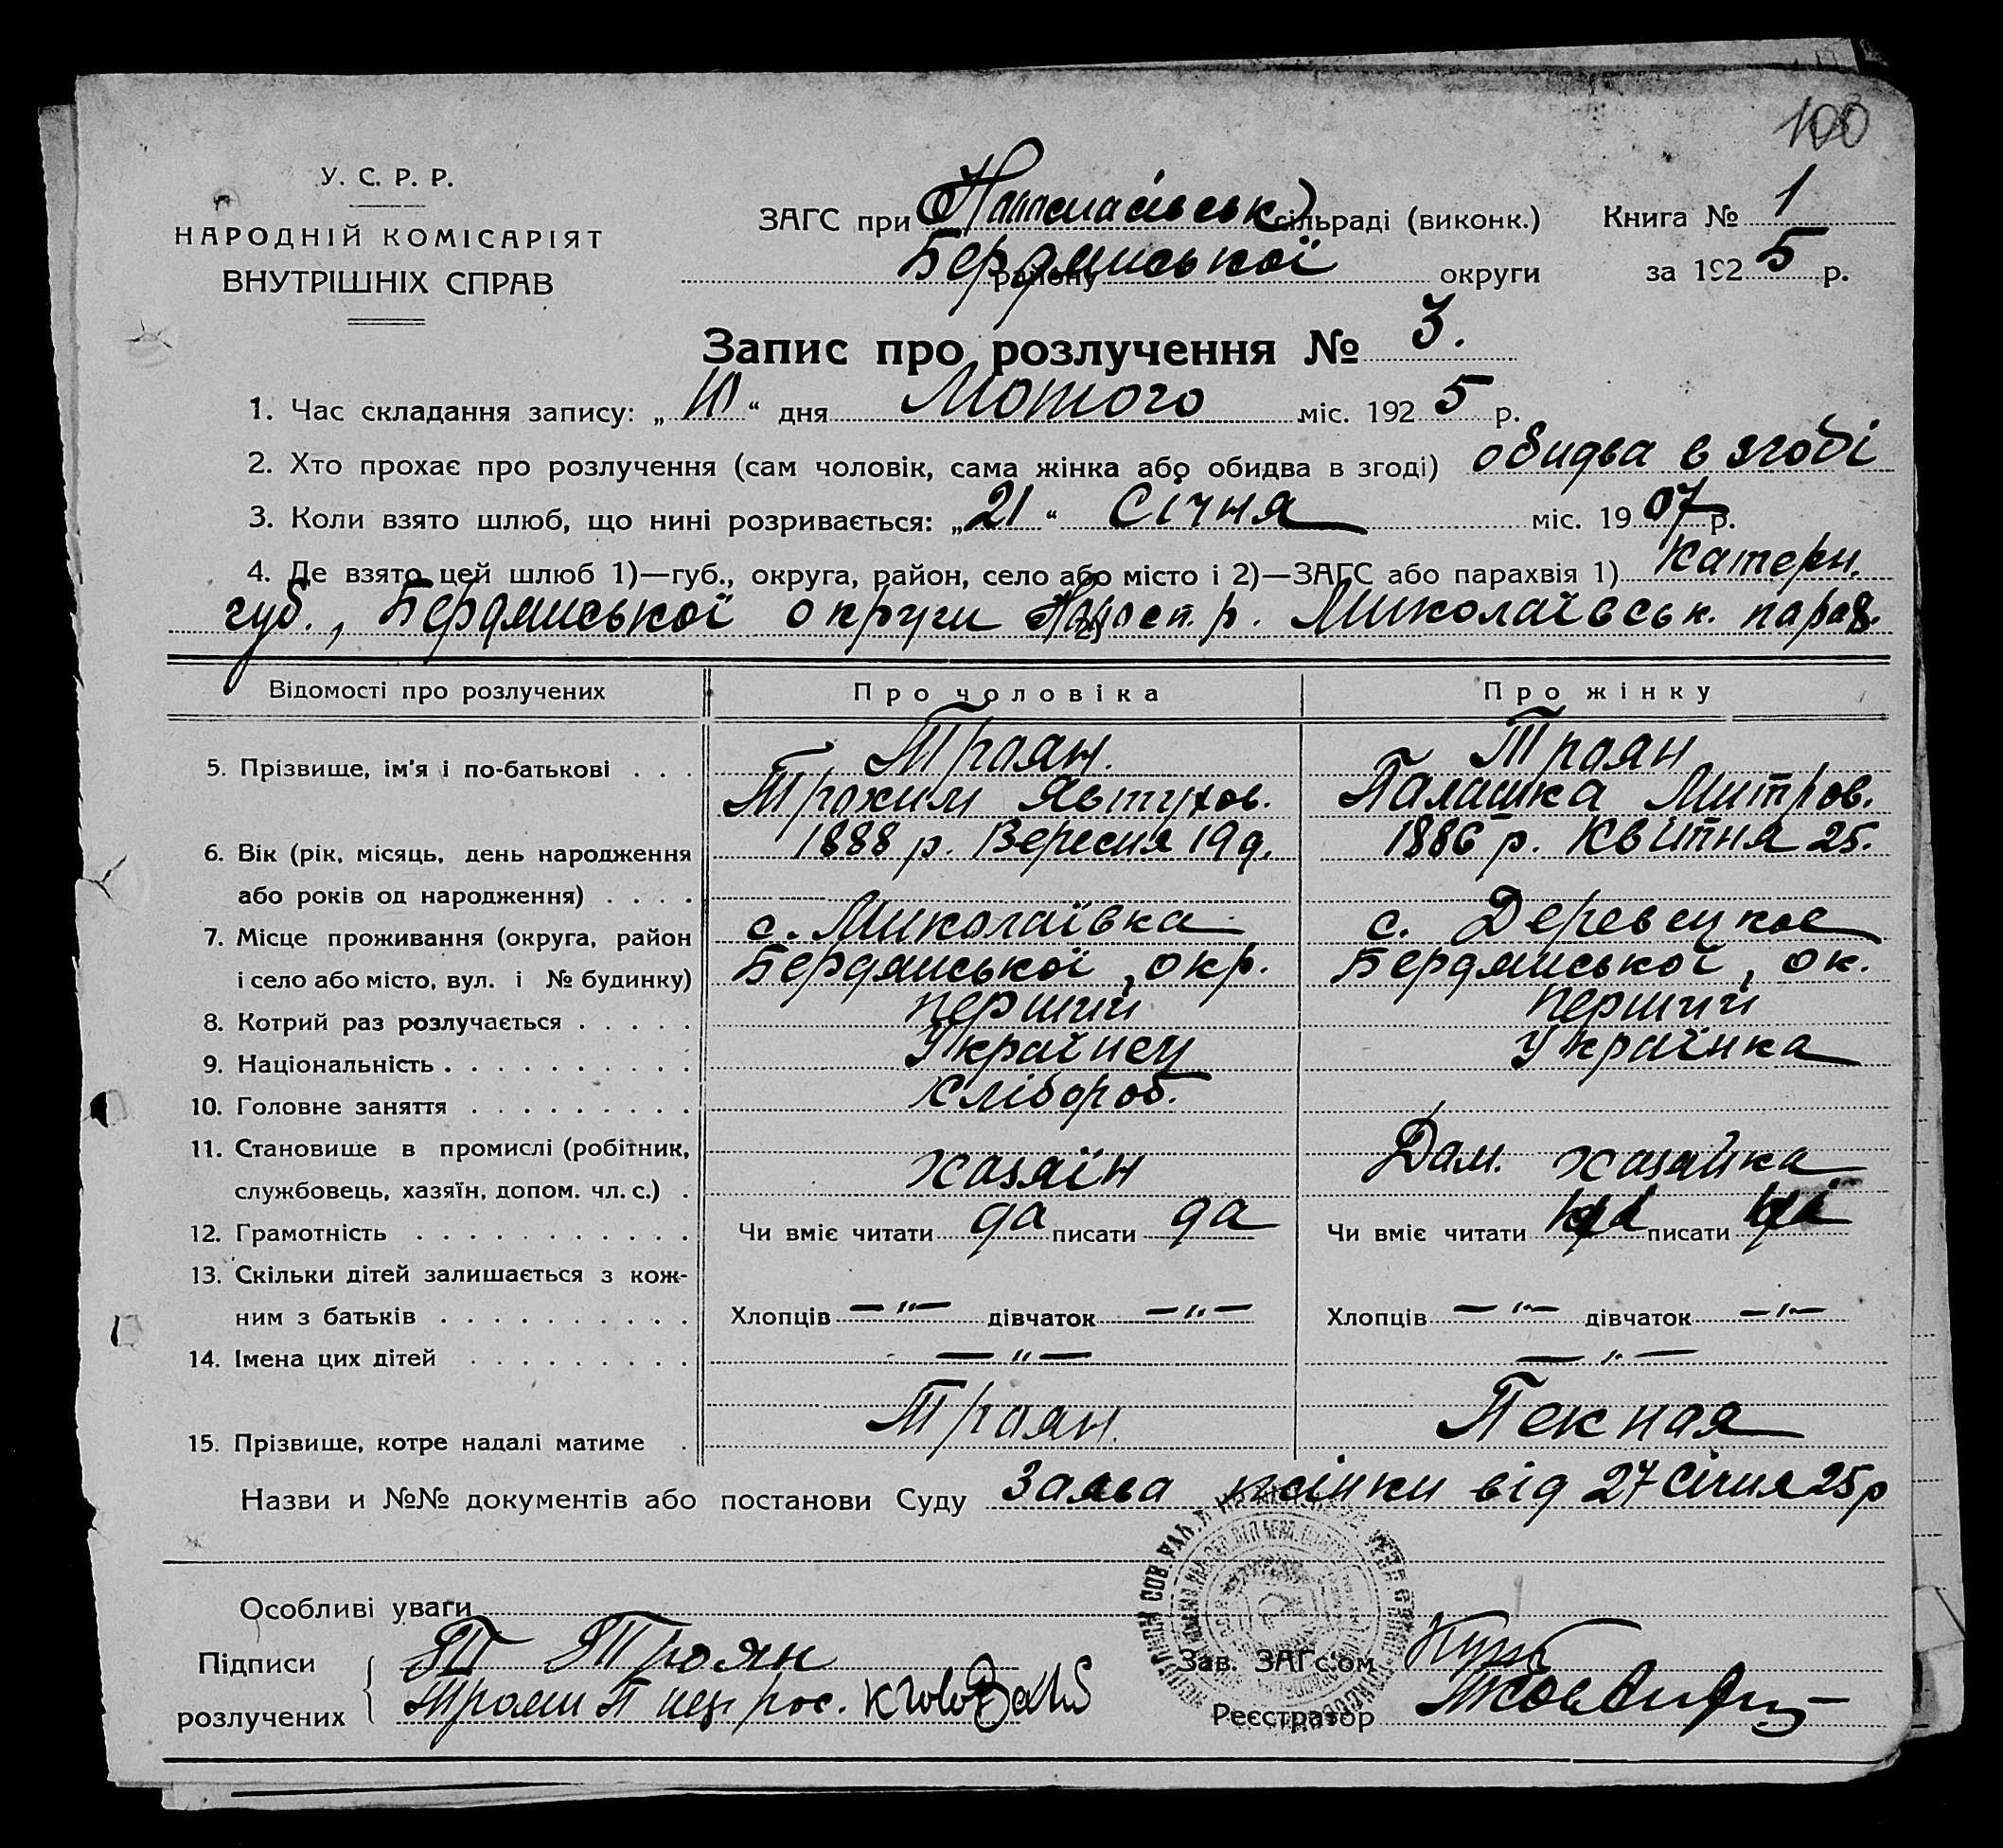 100
У. С. Р. Р.
НАРОДНІЙ КОМІСАРІЯТ
ВНУТРІШНІХ СПРАВ
ЗАГС при сільраді (виконк.) Книга № 1
Бердянської району округи за 1925 р.
Запис про розлучення № 3.
1. Час складання запису: „ “ дня Лютого міс. 1925 р.
2. Хто прохає про розлучення (сам чоловік, сама жінка або обидва в згоді) обидва в згоді
3. Коли взято шлюб, що нині розривається: „21“ Січня міс. 1907 р.
4. Де взято цей шлюб 1)—губ., округа, район, село або місто і 2)—ЗАГС або парахвія 1) Катерн.
губ., Бердянської округи р. Миколаївськ. парах.
Відомості про розлучених Про чоловіка Про жінку
5. Прізвище, ім'я і по-батькові . . . Троян. Троян
Трохим Явтухов. Палашка Митров.
6. Вік (рік, місяць, день народження 1888 р. Вересня 19 д. 1886 р. Квітня 25.
або років од народження) . . . .
7. Місце проживання (округа, район с. Миколаївка с. Деревецкое
і село або місто, вул. і № будинку) Бердянської, окр. Бердянської, ок.
8. Котрий раз розлучається . . . . . перший перший
9. Національність . . . . . . . . . . Українец Українка
10. Головне заняття . . . . . . . . . Хлібороб.
11. Становище в промислі (робітник,
службовець, хазяїн, допом. чл. с.) . хазяїн Дом. хазайка
12. Грамотність . . . . . . . . . . . Чи вміє читати да писати да Чи вміє читати писати
13. Скільки дітей залишається з кож-
ним з батьків . . . . . . . . . . Хлопців —"— дівчаток —"— Хлопців —"— дівчаток —"—
14. Імена цих дітей . . . . . . . . . —"— —"—
15. Прізвище, котре надалі матиме . Троян. Пекная
Назви и №№ документів або постанови Суду Заява жінки від 27 Січня 25 р
Особливі уваги
Підписи Т Троян Зав. ЗАГС'ом
розлучених Реєстратор